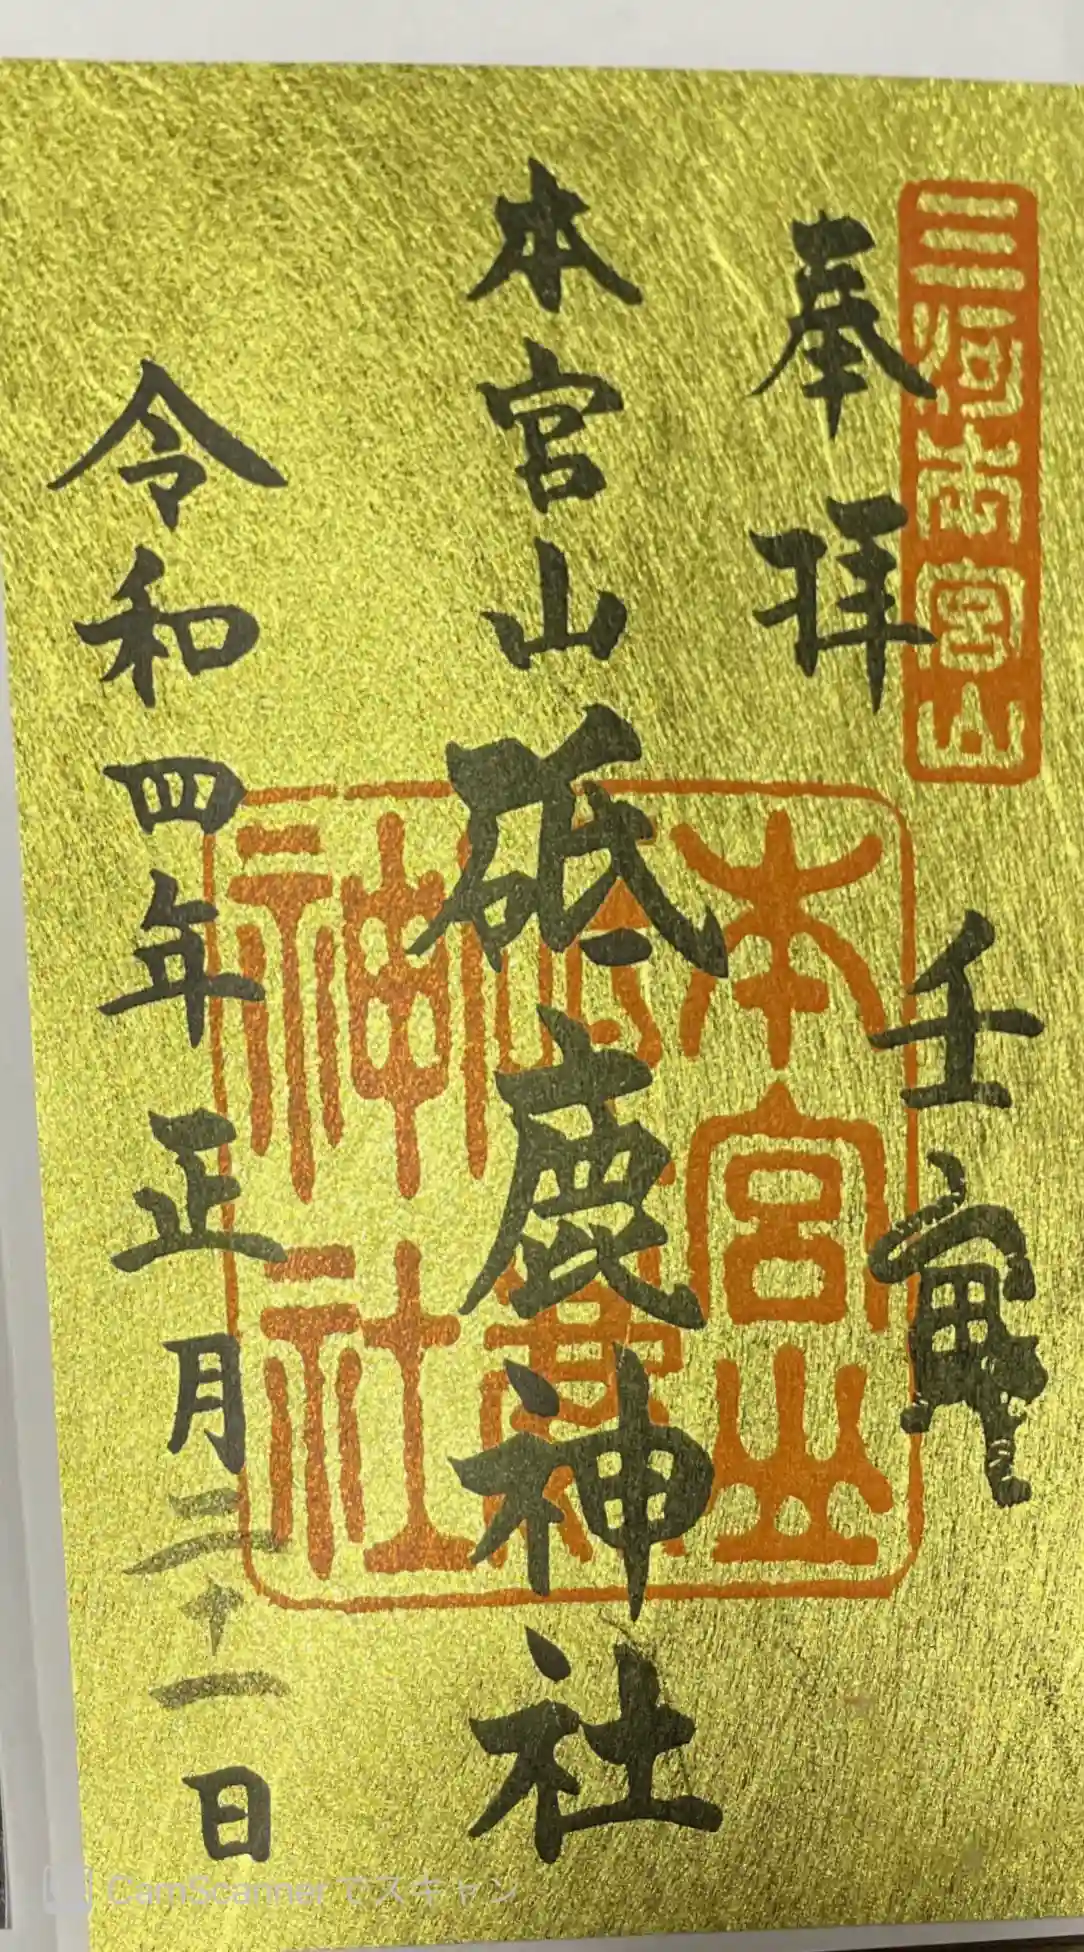 三河本宮山
奉拝
壬寅
本宮山砥鹿神社
本宮山
砥鹿
神社
令和四年正月二十一日
CamScannerでスキャン